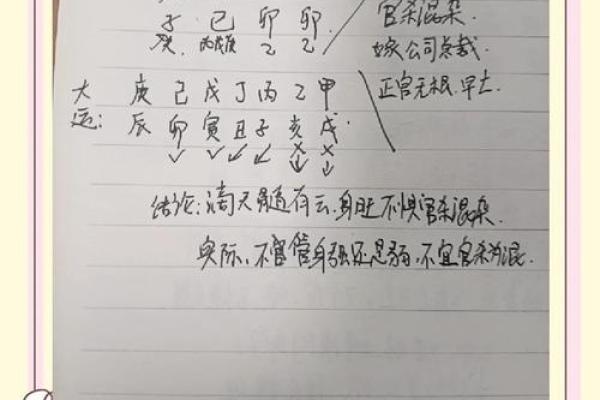 子 巳 卯 卯 官杀混杂.
癸 丙戊庚 乙 乙 嫁公司总裁.
大 庚 己 戊 丁 丙 乙 甲 正官无根.早亡.
运: 辰 卯 寅 丑 子 亥 戌
结论:滴天髓有云.身旺不惧官杀混杂.
实际、不管身强还是弱,不宜官杀为混.